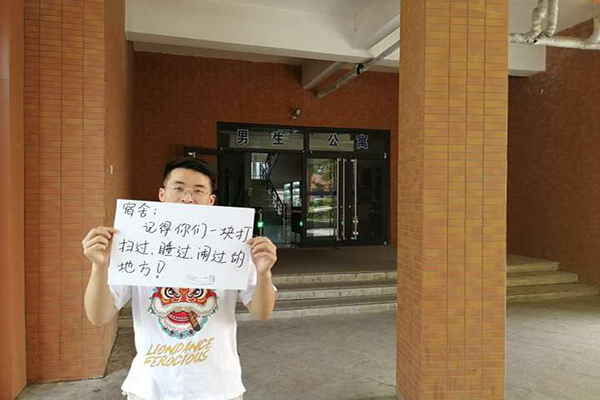 男生公寓
宿舍：
记得你们一块打
扫过、睡过、闹过的
地方！
LIONDANCE
FEROCIOUS